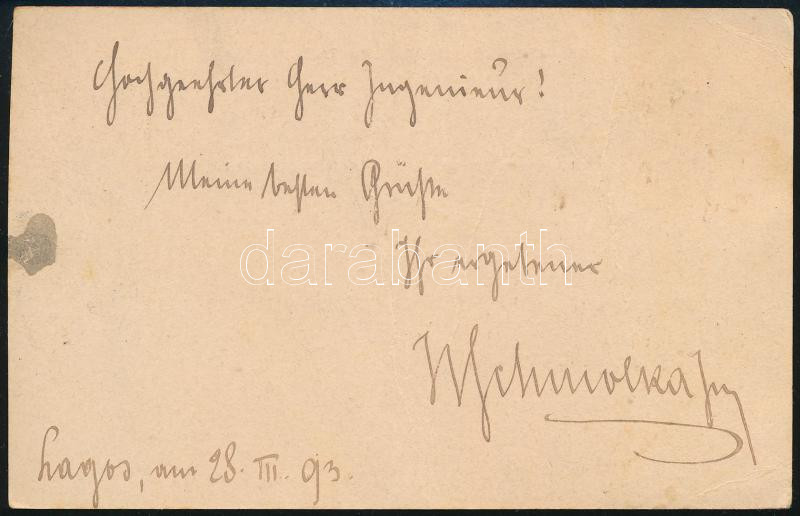 Hochgeehrter Herr Ingenieur!
Meine besten Grüße
Ihr ergebener
Schmolka
Lagos, am 28. III. 93.
darabanth